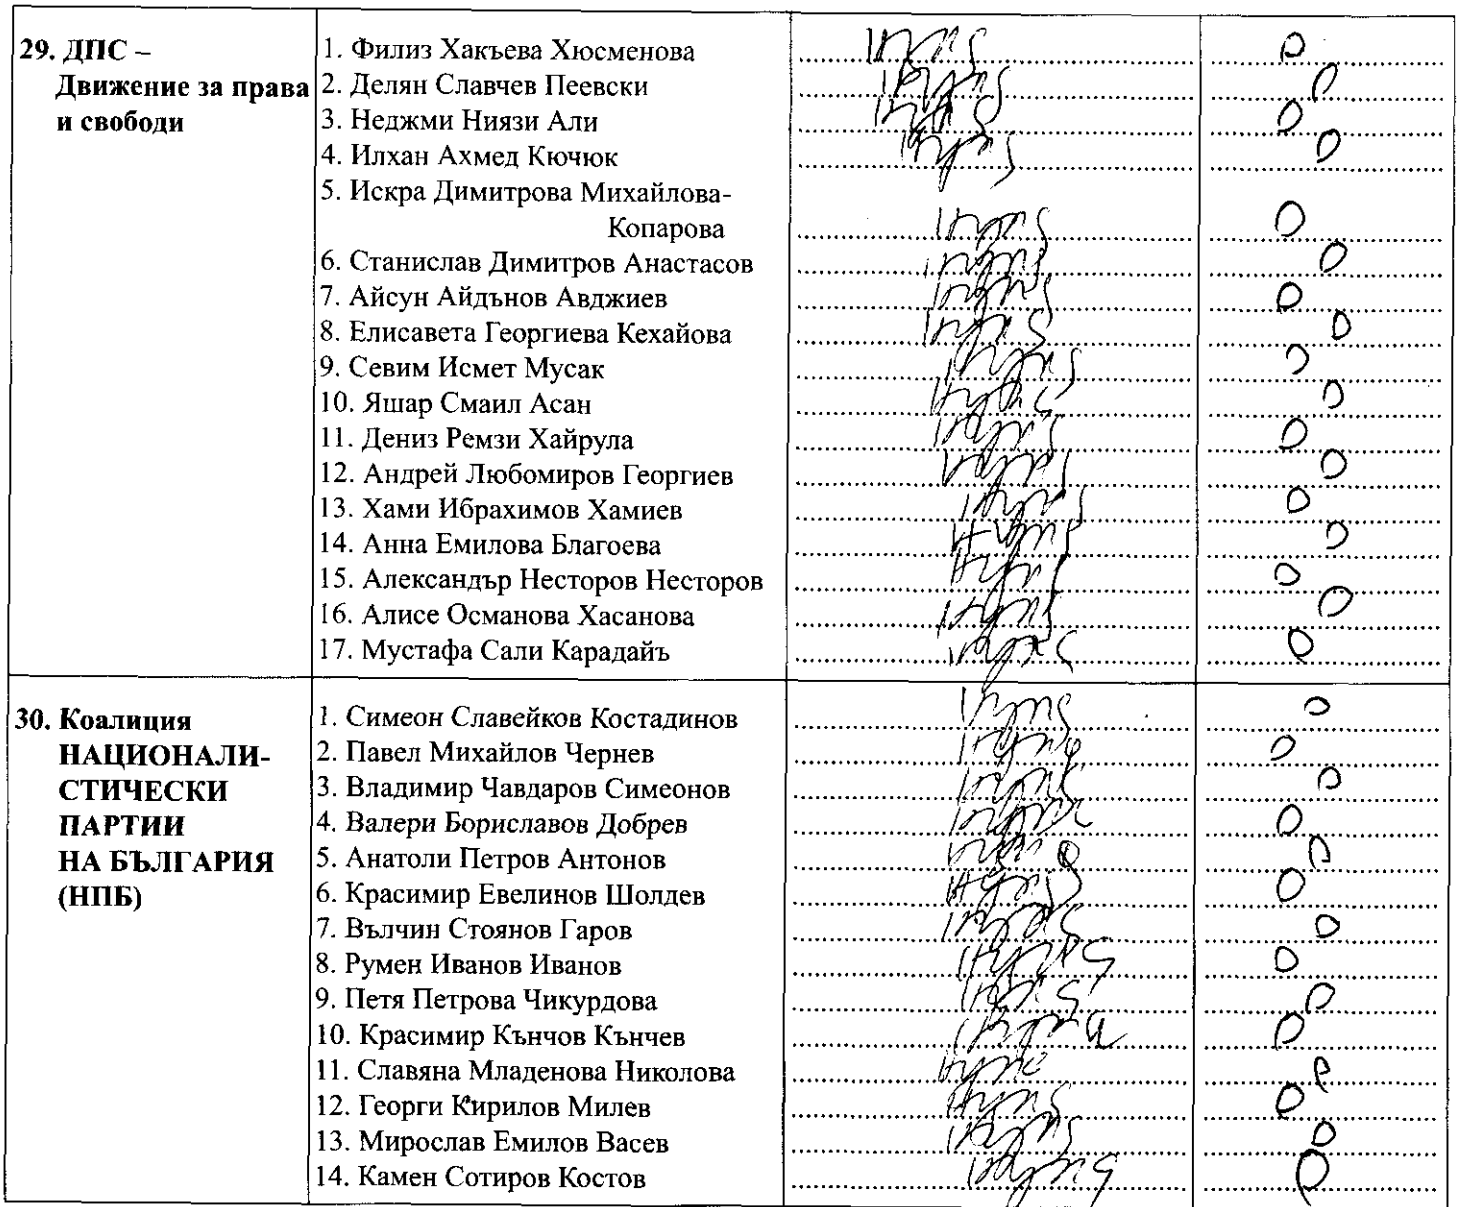 29. ДПС –
Движение за права
и свободи
1. Филиз Хакъева Хюсменова 0
2. Делян Славчев Пеевски 0
3. Неджми Ниязи Али 0
4. Илхан Ахмед Кючюк 0
5. Искра Димитрова Михайлова-
Копарова 0
6. Станислав Димитров Анастасов 0
7. Айсун Айдънов Авджиев 0
8. Елисавета Георгиева Кехайова 0
9. Севим Исмет Мусак 0
10. Яшар Смаил Асан 0
11. Дениз Ремзи Хайрула 0
12. Андрей Любомиров Георгиев 0
13. Хами Ибрахимов Хамиев 0
14. Анна Емилова Благоева 0
15. Александър Несторов Несторов 0
16. Алисе Османова Хасанова 0
17. Мустафа Сали Карадайъ 0
30. Коалиция
НАЦИОНАЛИ-
СТИЧЕСКИ
ПАРТИИ
НА БЪЛГАРИЯ
(НПБ)
1. Симеон Славейков Костадинов 0
2. Павел Михайлов Чернев 0
3. Владимир Чавдаров Симеонов 0
4. Валери Бориславов Добрев 0
5. Анатоли Петров Антонов 0
6. Красимир Евелинов Шолдев 0
7. Вълчин Стоянов Гаров 0
8. Румен Иванов Иванов 0
9. Петя Петрова Чикурдова 0
10. Красимир Кънчов Кънчев 0
11. Славяна Младенова Николова 0
12. Георги Кирилов Милев 0
13. Мирослав Емилов Васев 0
14. Камен Сотиров Костов 0